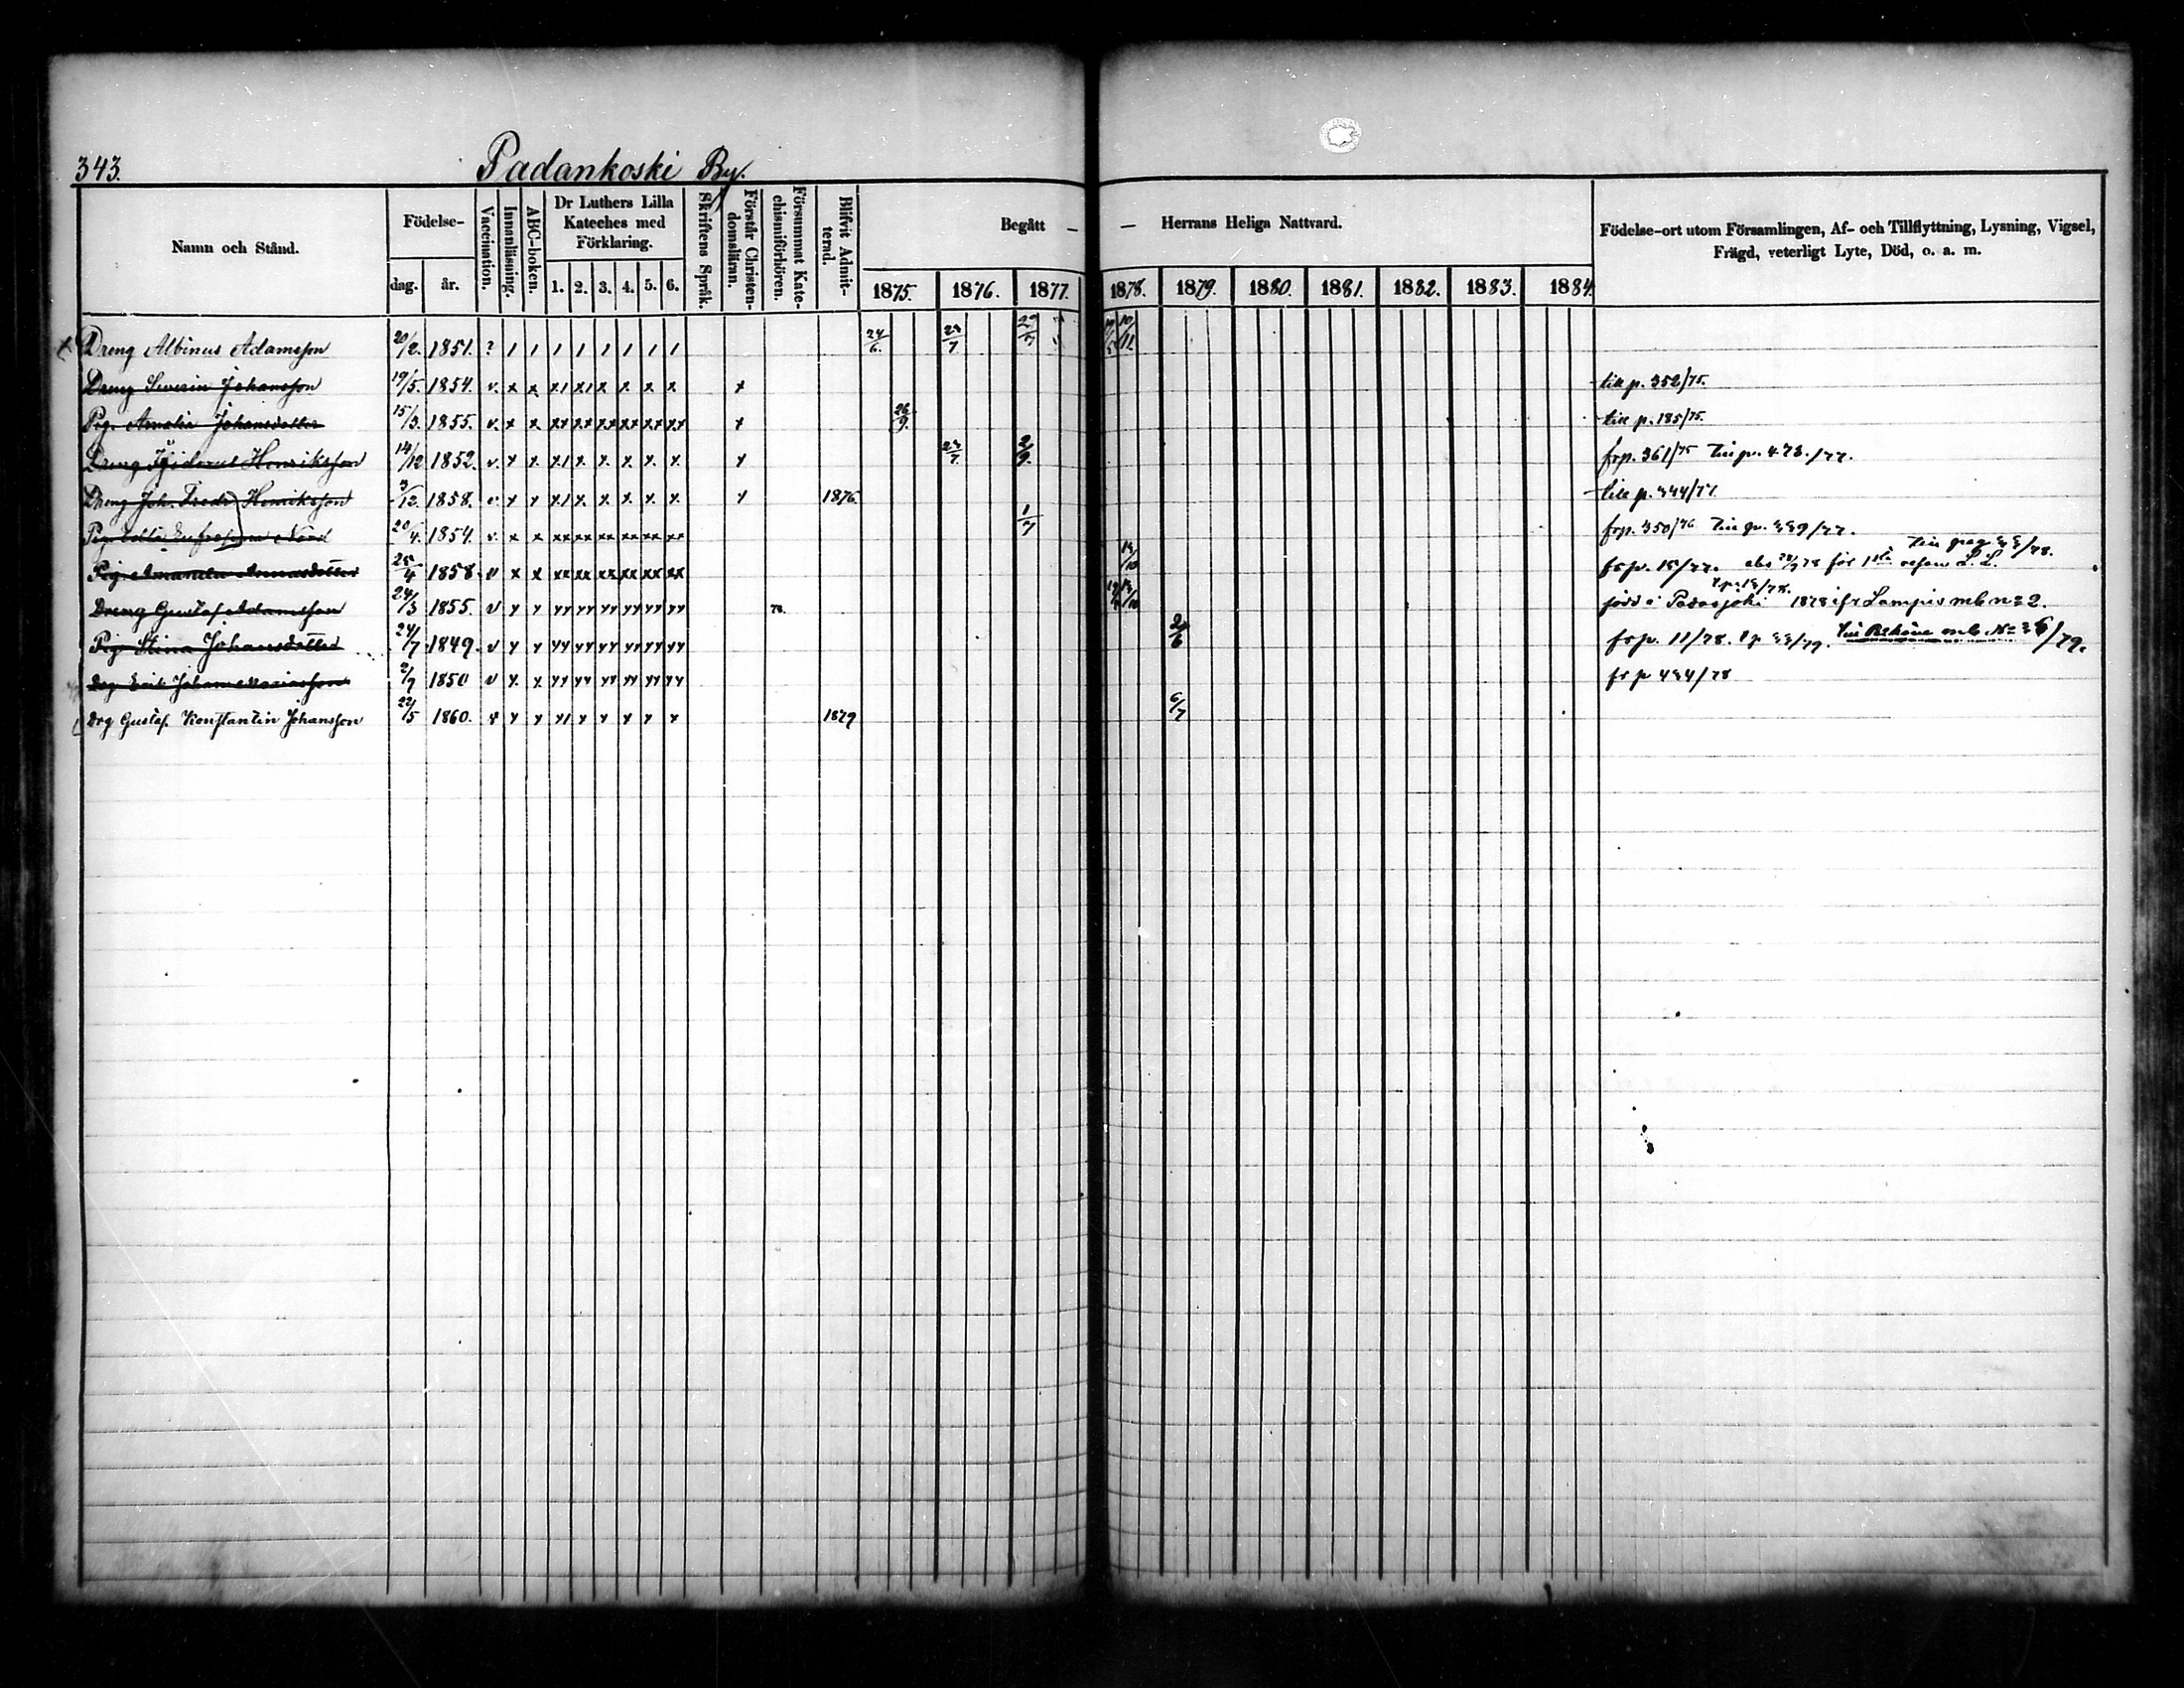 343.
Padankoski By.
Namn och Stånd.
Födelse-
dag. år.
Vaccination.
Innanläsning.
ABC-boken.
Dr Luthers Lilla
Kateches med
Förklaring.
1. 2. 3. 4. 5. 6.
Skriftens Språk.
Förstår Christen-
domsläran.
Försummat Kate-
chismiförhören.
Blifvit Admit-
terad.
Begått — — Herrans Heliga Nattvard.
1875. 1876. 1877. 1878. 1879. 1880. 1881. 1882. 1883. 1884.
Födelse-ort utom Församlingen, Af- och Tillflyttning, Lysning, Vigsel,
Frägd, veterligt Lyte, Död, o. a. m.
Dreng Albinus Adamsson 20/2. 1851. ? / / / / / / / / 24/6. 23/7.
Dreng Severin Johansson 19/5. 1854. v. x x x1 x1 x x x x x till p. 352/75.
Pig. Amalia Johansdotter 15/3. 1855. v. x x xx xx xx xx xx xx x 26/9. till p. 185/75.
Dreng Henriksson 14/12 1852. v. x x x1 x x x x x x 23/7. 2/9. frp. 361/75 Till p. 473./77.
Dreng Joh. Fredr. Henriksson 3/12. 1858. v. x x x1 x x x x x x 1876. till p. 444/77.
Pig. Eufrosyna Nord 20/4. 1854. v. x x xx xx xx xx xx xx 1/7 frp. 350/76
Pig. Amanda Annasdotter 25/4 1858. v x x xx xx xx xx xx xx frp. 15/77.
Dreng Gustaf Adamsson 24/3 1855. v x x xx xx xx xx xx xx 78. född i Padasjoki 1878 ifr Lampis mb n:o 2.
Pig. Stina Johansdotter 24/7 1849. v x x xx xx xx xx xx xx 2/6 frp. 11/78.
Drg Erik Johan Mariasson 2/7 1850 v x x xx xx xx xx xx xx fr p 434/78
Drg Gustaf Konstantin Johansson 22/5 1860. v x x x1 x x x x x 1879 6/7